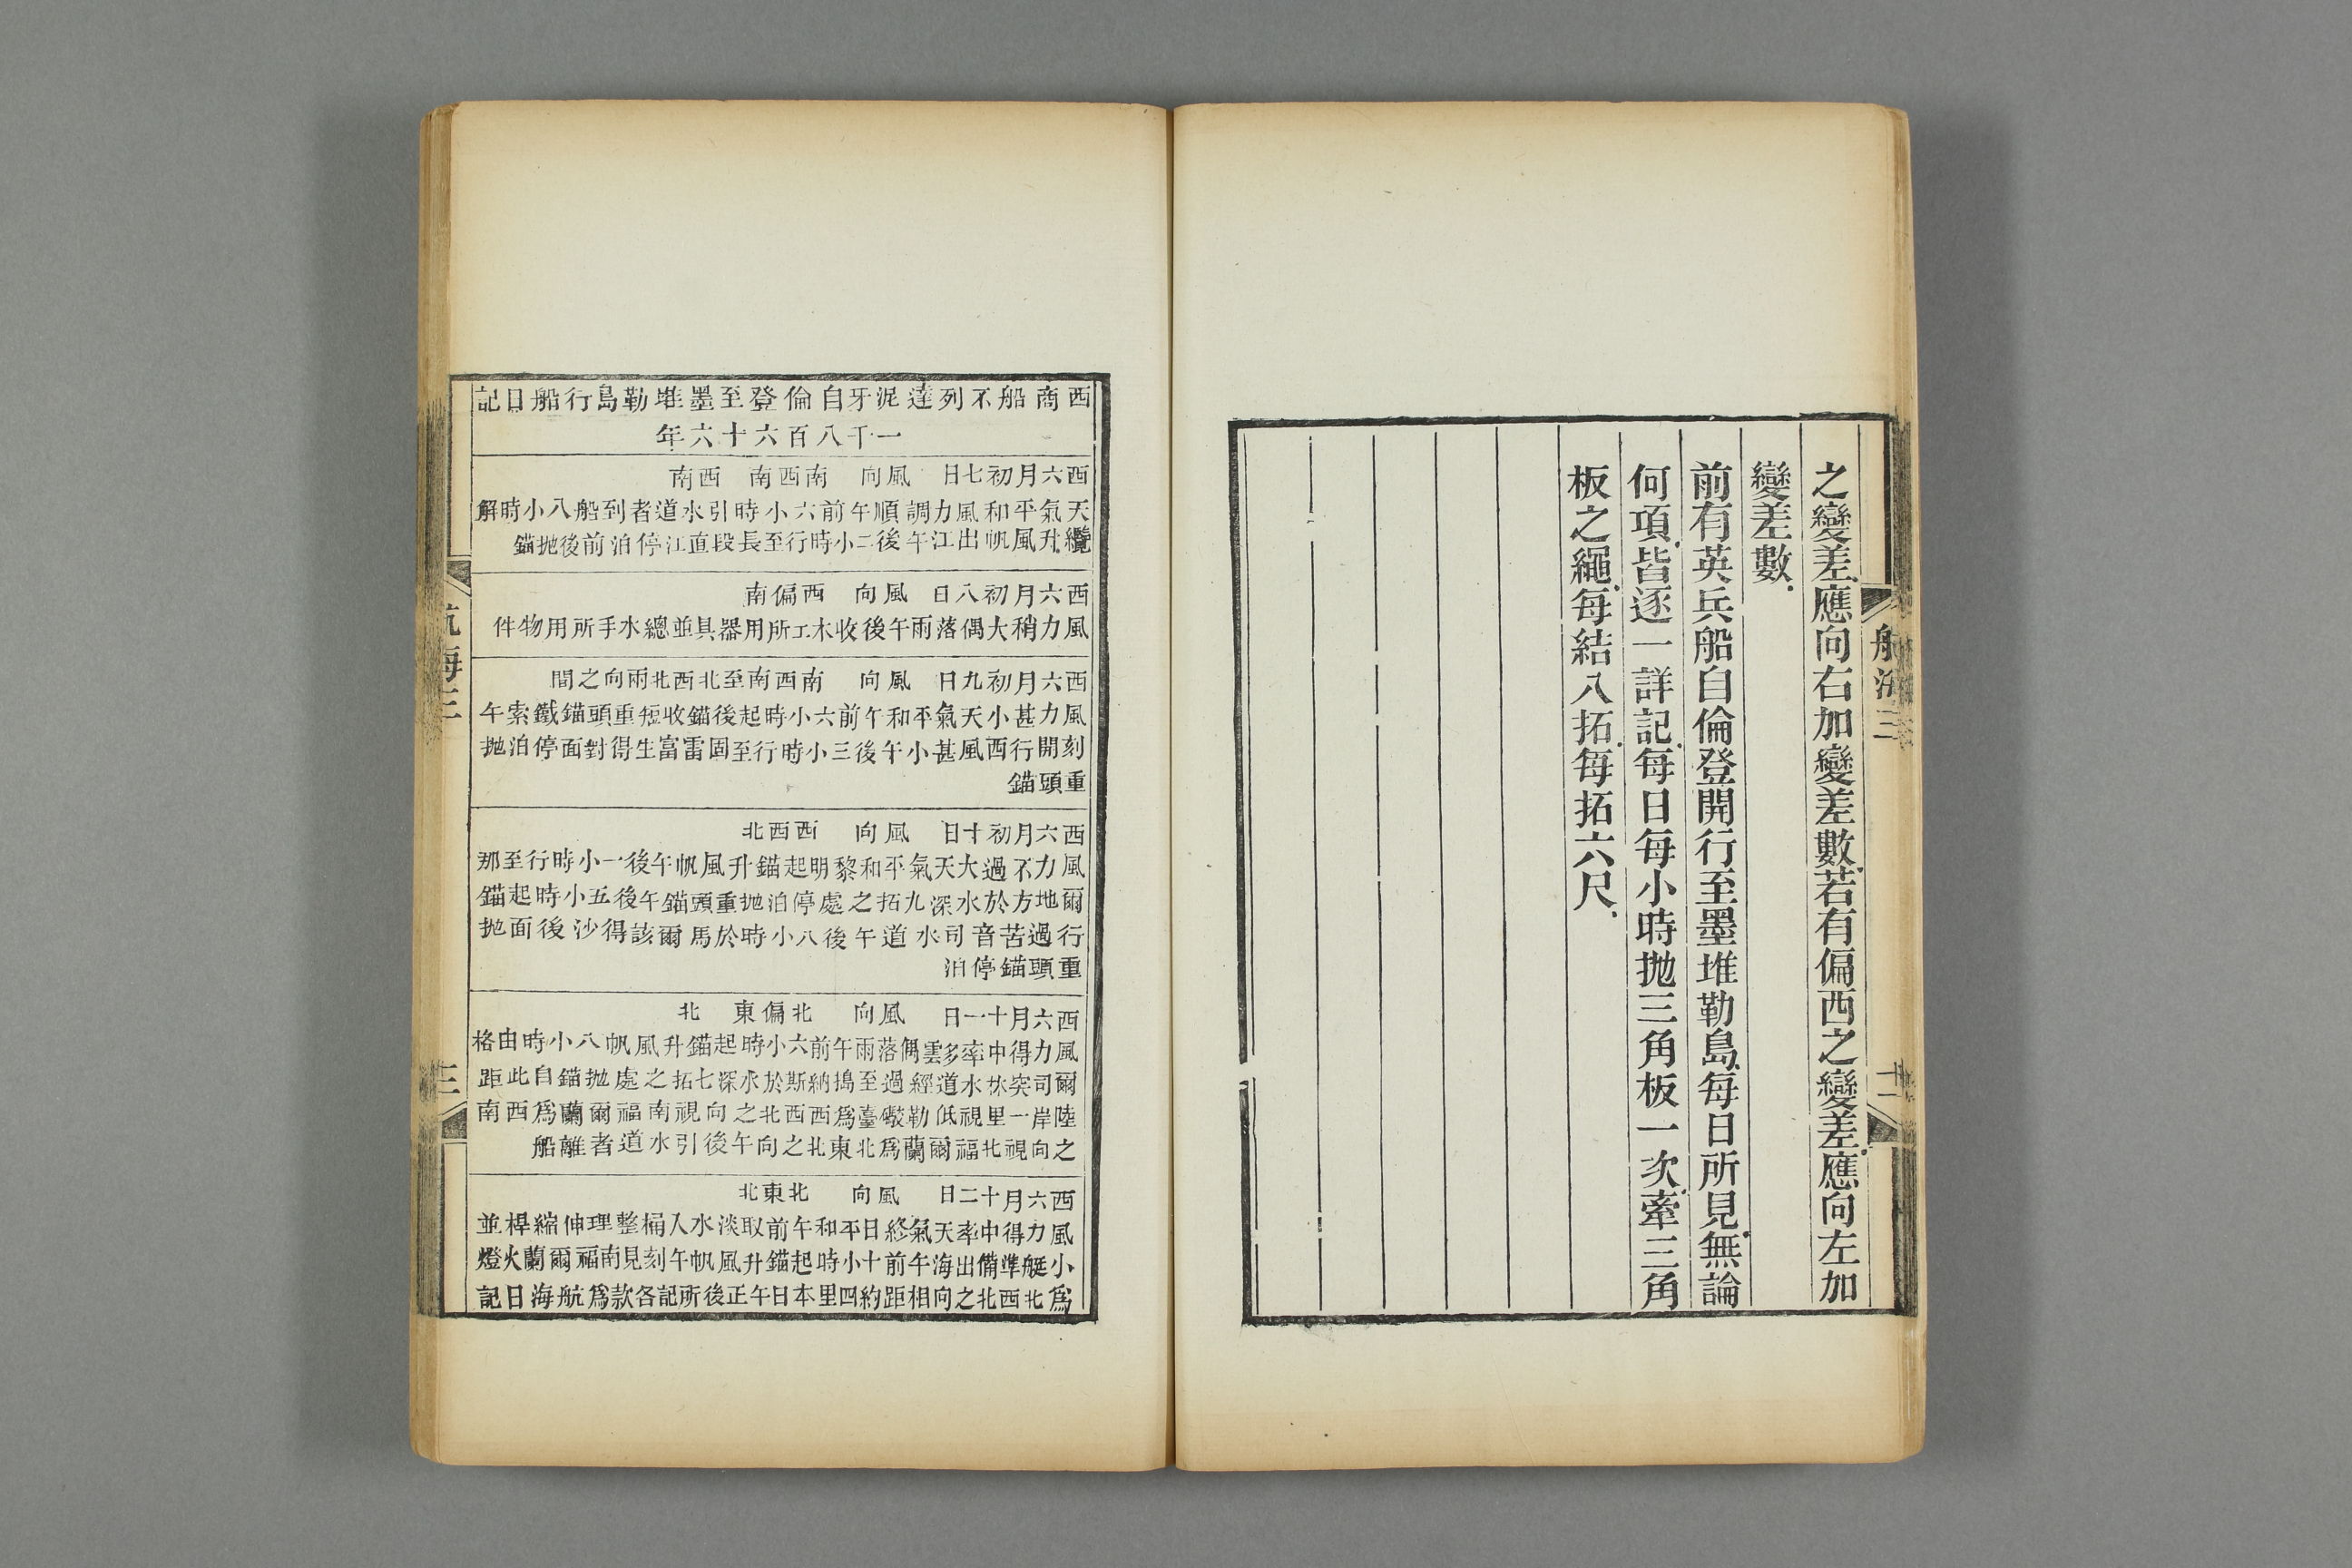 之變差應向右加變差數若有偏西之變差應向左加
變差數
前有英兵船自倫登開行至墨堆勒島每日所見無論
何項皆逐一詳記每日每小時拋三角板一次牽三角
板之繩每結八拓每拓六尺
航海三
十二
西商船不列達泥牙自倫登至墨堆勒島行船日記
一千八百六十六年
西六月初七日 風向 南西南 西南
天氣平和風力調順午前六小時引水道者到船八小時解
纜升風帆出江午後二小時行至長段直江停泊前後拋錨
西六月初八日 風向 西偏南
風力稍大偶落雨午後收木工所用器具並總水手所用物件
西六月初九日 風向 南西南至北西北兩向之間
風力甚小天氣平和午前六小時起後錨收短重頭錨鐵索午
刻開行西風甚小午後三小時行至固雷富生得對面停泊拋
重頭錨
西六月初十日 風向 西西北
風力不過大天氣平和黎明起錨升風帆午後一小時行至那
爾地方於水深九拓之處停泊拋重頭錨午後五小時起錨
行過苦音司水道午後八小時於馬爾該得沙後面拋
重頭錨停泊
西六月十一日 風向 北偏東 北
風力得中率多雲偶落雨午前六小時起錨升風帆八小時由格
爾司突炑水道經過至搗納斯於水深七拓之處拋錨自此距
陸岸一里視低勒礮臺爲西西北之向視南福爾蘭爲西南
之向視北福爾蘭爲北東北之向午後引水道者離船
西六月十二日 風向 北東北
風力得中率天氣終日平和午前取淡水入桶整理伸縮桿並
小艇準備出海午前十小時起錨升風帆午刻見南福爾蘭火燈
爲北西北之向相距約四里本日午正後所記各款爲航海日記
航海三
三